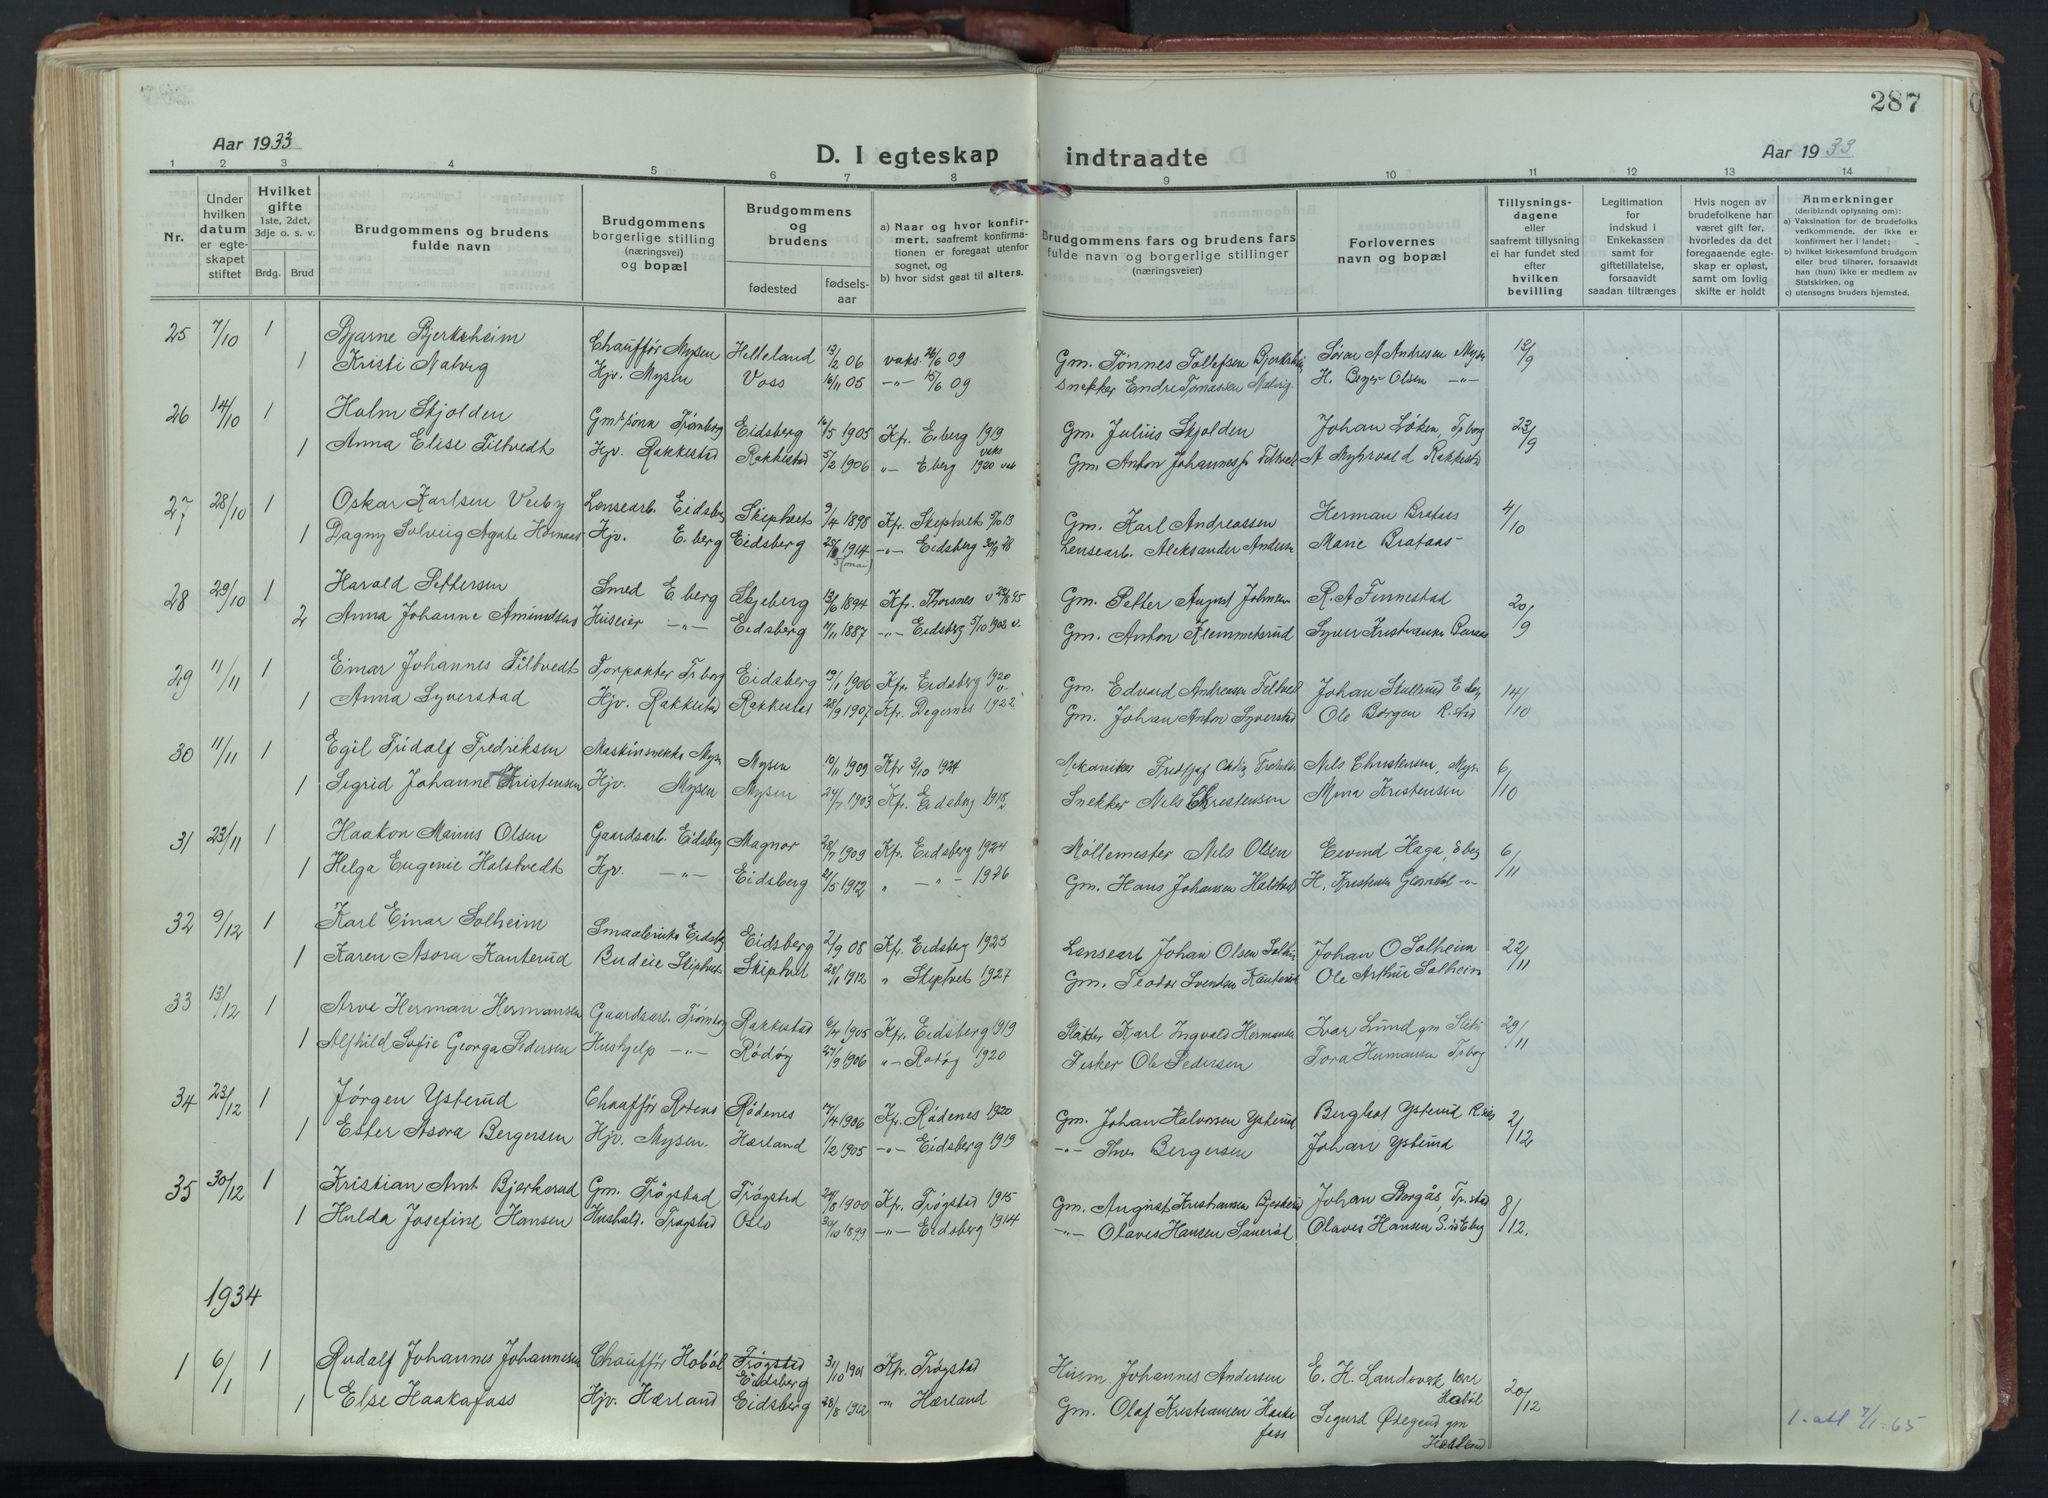 287
Aar 1933
D. I egteskap indtraadte
Aar 1933
1 2 3 4 5 6 7 8 9 10 11 12 13 14
Nr.
Under hvilken datum er egteskapet stiftet
Hvilket gifte
1ste, 2det, 3dje o. s. v.
Brdg. Brud
Brudgommens og brudens fulde navn
Brudgommens borgerlige stilling (næringsvei) og bopæl
Brudgommens og brudens
fødested
fødsels-aar
a) Naar og hvor konfirmert, saafremt konfirmationen er foregaat utenfor sognet, og
b) hvor sidst gaat til alters.
Brudgommens fars og brudens fars fulde navn og borgerlige stillinger (næringsveier)
Forlovernes navn og bopæl
Tillysnings-dagene eller saafremt tillysning ei har fundet sted efter hvilken bevilling
Legitimation for indskud i Enkekassen samt for giftetillatelse, forsaavidt saadan tiltrænges
Hvis nogen av brudefolkene har været gift før, hvorledes da det foregaaende egteskap er opløst, samt om lovlig skifte er holdt
Anmerkninger
(deriblandt oplysning om):
a) Vaksination for de brudefolks vedkommende, der ikke er konfirmert her i landet;
b) hvilket kirkesamfund brudgom eller brud tilhører, forsaavidt han (hun) ikke er medlem av Statskirken, og
c) utensogns bruders hjemsted.
25 7/10 1 Bjarne Bjerkheim Chauffør Mysen Helleland 13/2 06 vaks. 26/6 09 Gm. Tønnes Tollefsen Søren A Andresen Mysen 13/9
1 Kristi Natvig Hjv. Mysen Voss 16/11 05 -"- 15/6 09 Snekker Endre Natvig H. Olsen -"-
26 14/10 1 Holm Skjolden Gmsønn Trømborg Eidsberg 16/5 1905 Kfr. E.berg 1919 Gm. Julius Skjolden Johan Løken, Tr.borg 23/9
1 Anna Elise Tiltvedt Hjv. Rakkestad Rakkestad 5/2 1906 " E.berg 1920 Gm. Anton A Myhrvold Rakkestad
27 28/10 1 Oskar Karlsen Veeby Lensearb. Eidsberg Skiptvet 3/4 1898 Kfr. Skiptvet 13 Gm. Karl Andreassen Herman Brataas 4/10
1 Dagny Solveig Agate Hjv. E.berg Eidsberg 1914 (mai) -"- Eidsberg 28 Lensearb. Aleksander Marie Brataas
28 29/10 1 Harald Pettersen Smed E.berg Skjeberg 13/6 1894 Kfr. Thorsnes Gm. Petter August R. A Finnestad 20/9
2 Anna Johanne Amundsen Huseier -"- Eidsberg 11/11 1887 -"- Eidsberg 5/10 1902 v. Gm. Anton Klemmetsrud Syver
29 11/11 1 Einar Johannes Tiltvedt Forpakter Tr.borg Eidsberg 19/1 1906 Kfr. Eidsberg 1920 Gm. Edvard Andreassen Johan 14/10
1 Anna Syverstad Hjv. Rakkestad Rakkestad 28/9 1907 Kfr. Degernes 1922 Gm. Johan Anton Syverstad Ole Borgen R.stad
30 11/11 1 Egil Fridolf Fredriksen Mysen Mysen 10/11 1909 Kfr 3/10 1924 Mekaniker Nils Christensen, Mysen 6/10
1 Sigrid Johanne Kristensen Hjv. Mysen Mysen 24/7 1903 Kfr. Eidsberg 1918 Snekker Nils Christensen Mina Kristensen
31 23/11 1 Haakon Marius Olsen Gaardsarb. Eidsberg Magnor 28/7 1909 Kfr. Eidsberg 1924 Møllemester Nils Olsen Eivind Haga, E.berg 6/11
1 Helga Eugenie Halstvedt Hjv. -"- Eidsberg 21/5 1912 " -"- 1926 Gm. Hans Johansen H. Kristensen -"-
32 9/12 1 Karl Einar Solheim Eidsberg Eidsberg 2/9 08 Kfr. Eidsberg 1923 Lensearb Johan Olsen Johan O Solheim 22/11
1 Karen Asora Kanterud Budeie Skiptvet Skiptvet 28/1 1912 " Skiptvet 1927 Gm. Teodor Svendsen Kanterud Ole Arthur Solheim
33 13/12 1 Arve Herman Hermansen Gaardsarb. Trømborg Rakkestad 6/4 1905 Kfr. Eidsberg 1919 Karl Ingvald Hermansen Ivar Lund gm 29/11
1 Alfhild Sofie Georga Pedersen Hushjelp -"- Rødøy 27/9 1906 -"- Rødøy 1920 Fisker Ole Pedersen Tora Hermansen Tr.borg
34 23/12 1 Jørgen Ysterud Chauffør Rødenes Rødenes 7/4 1906 Kfr. Rødenes 1920 Gm. Johan Halvorsen Ysterud Ysterud 2/12
1 Ester Asora Bergersen Hjv. Mysen. Hærland 1/2 1905 -"- Eidsberg 1919 -"- Bergersen Johan Ysterud
35 30/12 1 Kristian Arnt Bjerkerud Gm. Trøgstad Trøgstad 24/8 1900 Kfr. Trøgstad 1915 Gm. August Kristiansen Bjerkerud Johan Borgås, Tr.stad 8/12.
1 Hulda Josefine Hansen Hushold. Trøgstad Oslo 30/10 1899 -"- Eidsberg 1914 -"- Olaves Hansen Olaves Hansen
1934
1 6/1 1 Rudolf Johannes Johannesen Chauffør Hobøl Trøgstad Eidsberg 31/10 1901 Kfr. Trøgstad Husm. Johannes Andersen E. H. Landsverk Hobøl 20/12
1 Else Haakafoss Hjv. Hærland Eidsberg 28/8 1912 " Hærland Gm. Olaf Kristiansen Haakafoss Sigurd Ødegaard gm Hærland
1. att 7/1-65